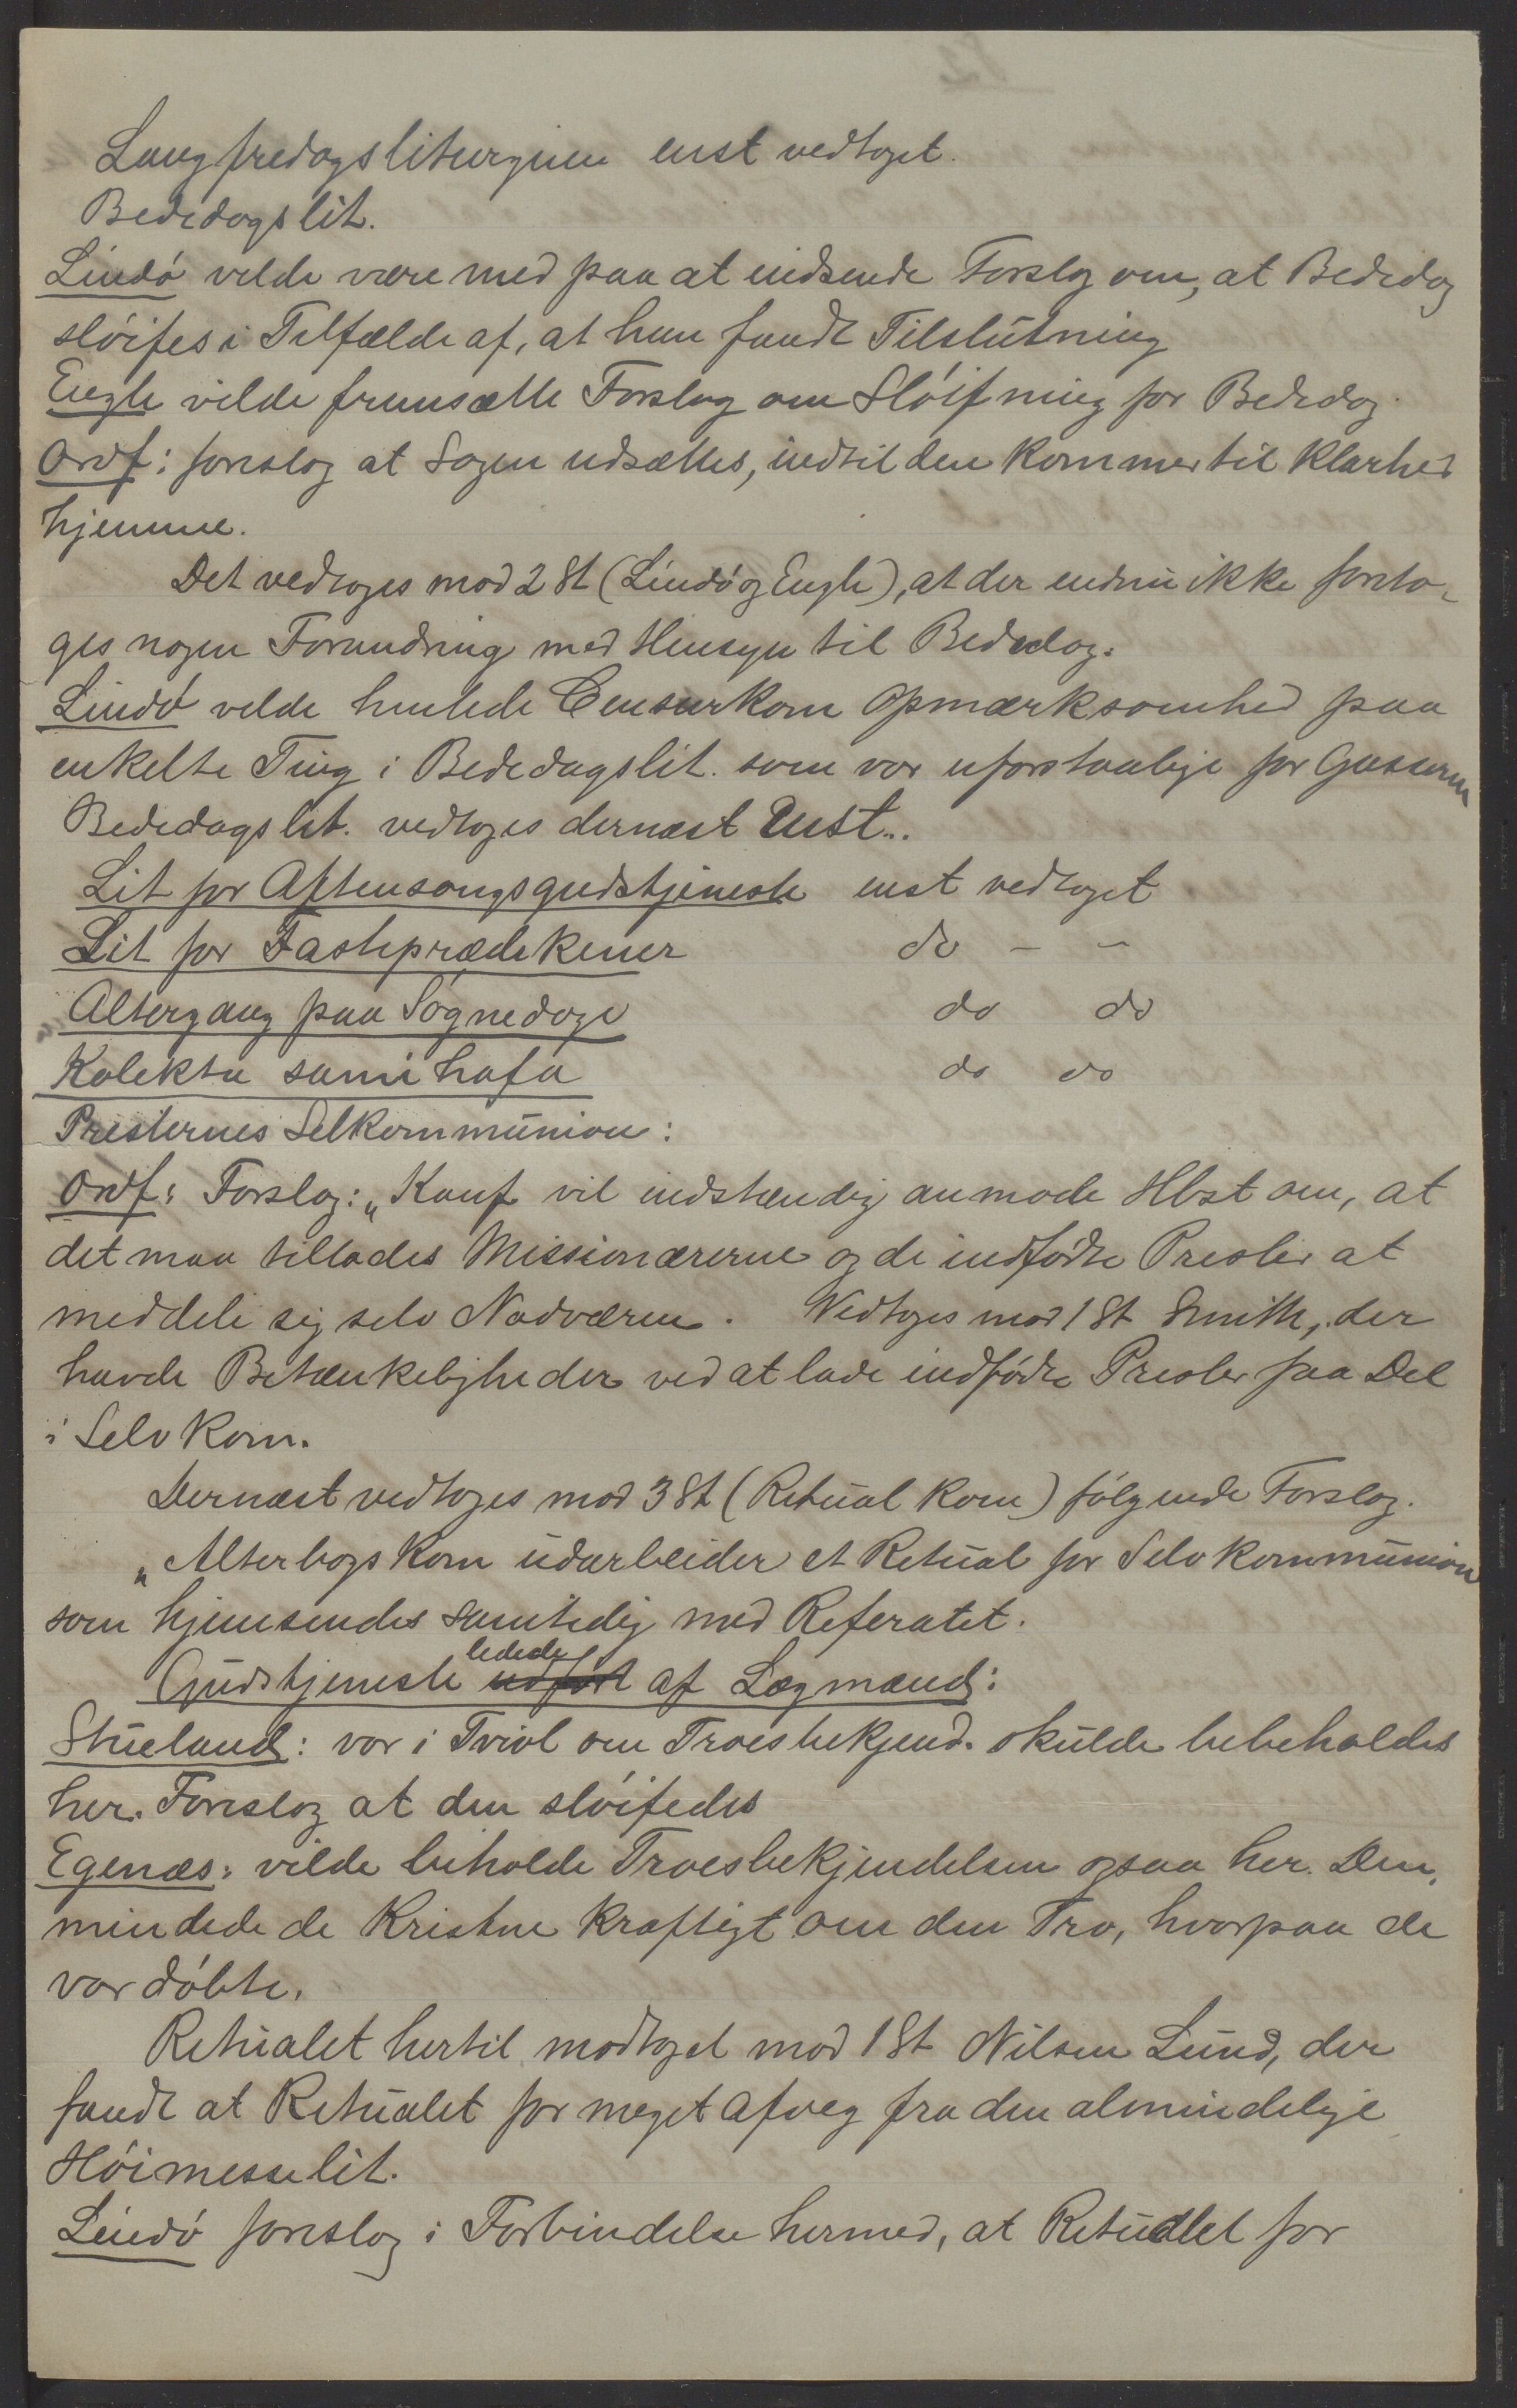 Langfredagsliturgien enst vedtaget.
Bededagslit.
Lindö vilde være med paa at indsende Forslag om, at Bededag
slöifes i Tilfælde af, at han fandt Tilslutning
Engh vilde fremsætte Forslag om Slöifning for Bededag.
Ordf: foreslog at Sagen udsættes, indtil den kommer til Klarhed
hjemme.
Det vedtoges mod 2 St (Lindö og Engh), at der endnu ikke foreto-
ges nogen Forandring med Hensyn til Bededag.
Lindö vilde henlede Censurkom Opmærksomhed paa
enkelte Ting i Bededagslit. som var uforstaalige for Gasserne
Bededagslit. vedtoges dernæst Enst..
Lit for Aftensangsgudstjeneste enst vedtaget
Lit for Fasteprædikener do - -
Altergang paa Sögnedage do do
Kolekta samihafa do do
Presternes Selkommunion:
Ordf: Forslag: „Konf vil indstændig anmode Hbst om, at
det maa tillades Missionærerne og de indfödte Prester at
meddele sig selv Nadværen. Vedtoges mod 1 St Smith, der
havde Betænkeligheder ved at lade indfödte Prester faa Del
i Selvkom.
Dernæst vedtoges mod 3 St (Ritual kom) fölgende Forslag.
„Alterbogskom udarbeider et Ritual for Selvkommunion
som hjemsendes samtidig med Referatet.
Gudstjeneste udfört ledede af Lægmænd:
Stueland: var i Tvivl om Troesbekjend. skulde bibeholdes
her. Foreslog at den slöifedes
Egenæs: vilde beholde Troesbekjendelsen ogsaa her. Den
mindede de Kristne kraftigt om den Tro, hvorpaa de
var döbte.
Ritualet hertil modtaget mod 1 St Nilsen Lund, der
fandt at Ritualet for meget afveg fra den almindelige
Höimesselit.
Lindö foreslog i Forbindelse hermed, at Ritualet for